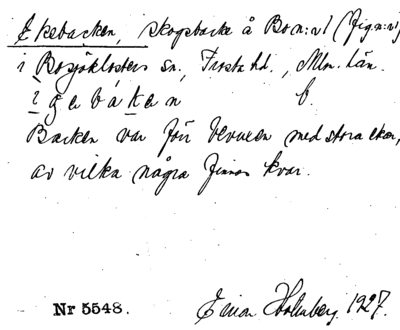 Ekebacken, skogsbacke å Bo n:r 1 (fig. n:r 1)
i Bosjöklosters sn., Frosta hd., Mlm. län.
ɛgəbakən f.
Backen var förr bevuxen med stora ekar,
av vilka några finnas kvar.
Nr 5548. Einar Holmberg 1927.